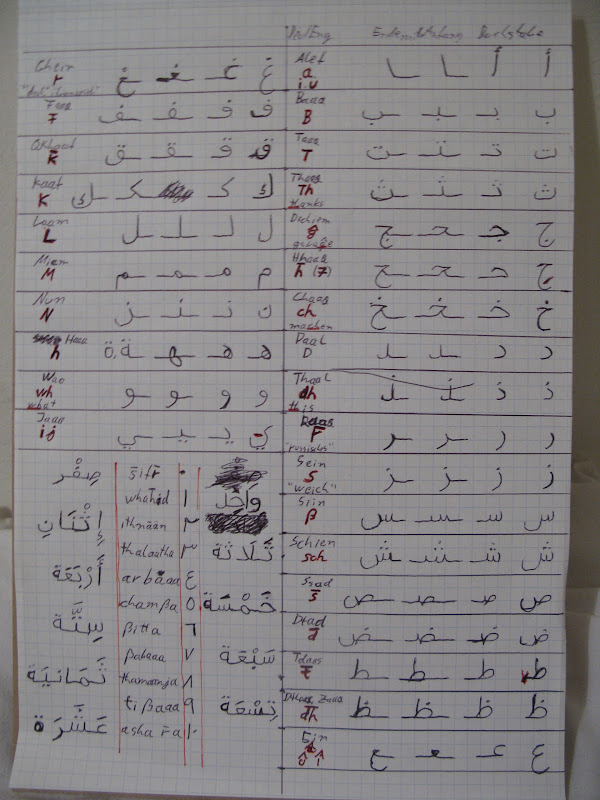 Deu/Eng
Alef أ أ ـا ـا
a
i,u
Baaa ب بـ ـبـ ـب
B
Taaa ت تـ ـتـ ـت
T
Thaaa ث ثـ ـثـ ـث
Th
thanks
Dschiem ج جـ ـجـ ـج
g
garage
Hhaaa ح حـ ـحـ ـح
h (7)
Chaaa خ خـ ـخـ ـخ
ch
machen
Daal د د ـد ـد
D
Thaal ذ ذ ـذ ـذ
dh
this
Raaa ر ر ـر ـر
r
Sein ز ز ـز ـز
s
"weich"
Siin س سـ ـسـ ـس
ß
Schien ش شـ ـشـ ـش
sch
Ssad ص صـ ـصـ ـص
s
Dtad ض ضـ ـضـ ـض
d
Tdaas ط طـ ـطـ ـط
t
Dthaa, Zaaa ظ ظـ ـظـ ـظ
dh
Ein ع عـ ـعـ ـع
Chein غ غـ ـغـ ـغ
r
Faaa ف فـ ـفـ ـف
F
Qkhaaf ق قـ ـقـ ـق
K
Kaaf ك كـ ـكـ ـك
K
Laam ل لـ ـلـ ـل
L
Miem م مـ ـمـ ـم
M
Nun ن نـ ـنـ ـن
N
Haaa ه هـ ـهـ ـة,ة
h
Wao و و ـو ـو
wh
what
Jaaa ي يـ ـيـ ـي
i j
صِفْر sifr ٠
whahid ١ وَاحِد
إِثْنَانِ ithnaan ٢
thalaatha ٣ ثَلَاثَة
أَرْبَعَة arbaaa ٤
chamßa ٥ خَمْسَة
سِتَّة ßitta ٦
ßabaaa ٧ سَبْعَة
ثَمَانِيَة thamaanja ٨
tißaaa ٩ تِسْعَة
عَشَرَة ashara ١٠